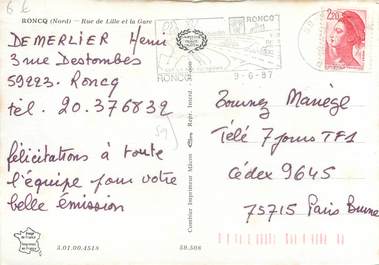 6 €
RONCQ (Nord) - Rue de Lille et la Gare
DEMERLIER Henri
3 rue Destombes
59223. Roncq
tel. 20.376832
59
félicitations à toute
l'équipe pour votre
belle émission
3.01.00.4518
59.508
Combier Imprimeur Mâcon
Repr. Interd.
RONCQ
RONCQ
9-6-87
2,20
Tournez Manège
Télé 7 jours TF1
Cédex 9645
75715 Paris Brune